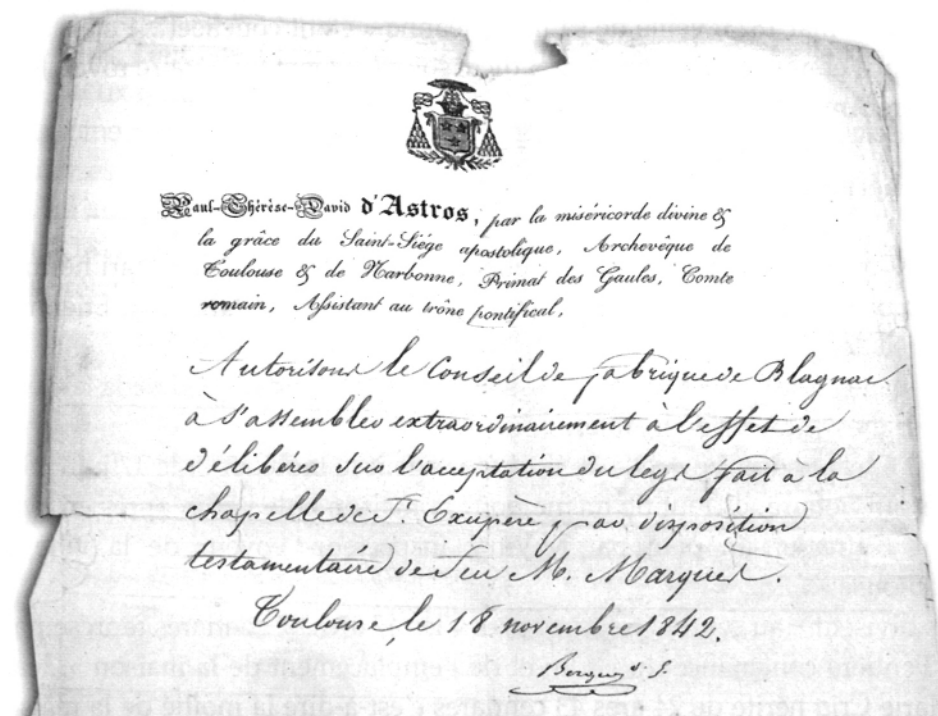 Paul-Thérèse-David d'Astros, par la miséricorde divine &
la grâce du Saint-Siége apostolique, Archevêque de
Toulouse & de Narbonne, Primat des Gaules, Comte
romain, Assistant au trône pontifical,
Autorisons le Conseil de fabrique de Blagnac
à s'assembler extraordinairement à l'effet de
délibérer sur l'acceptation du legs fait à la
chapelle de St. Exupère par disposition
testamentaire de feu M. Marquès.
Toulouse le 18 novembre 1842,